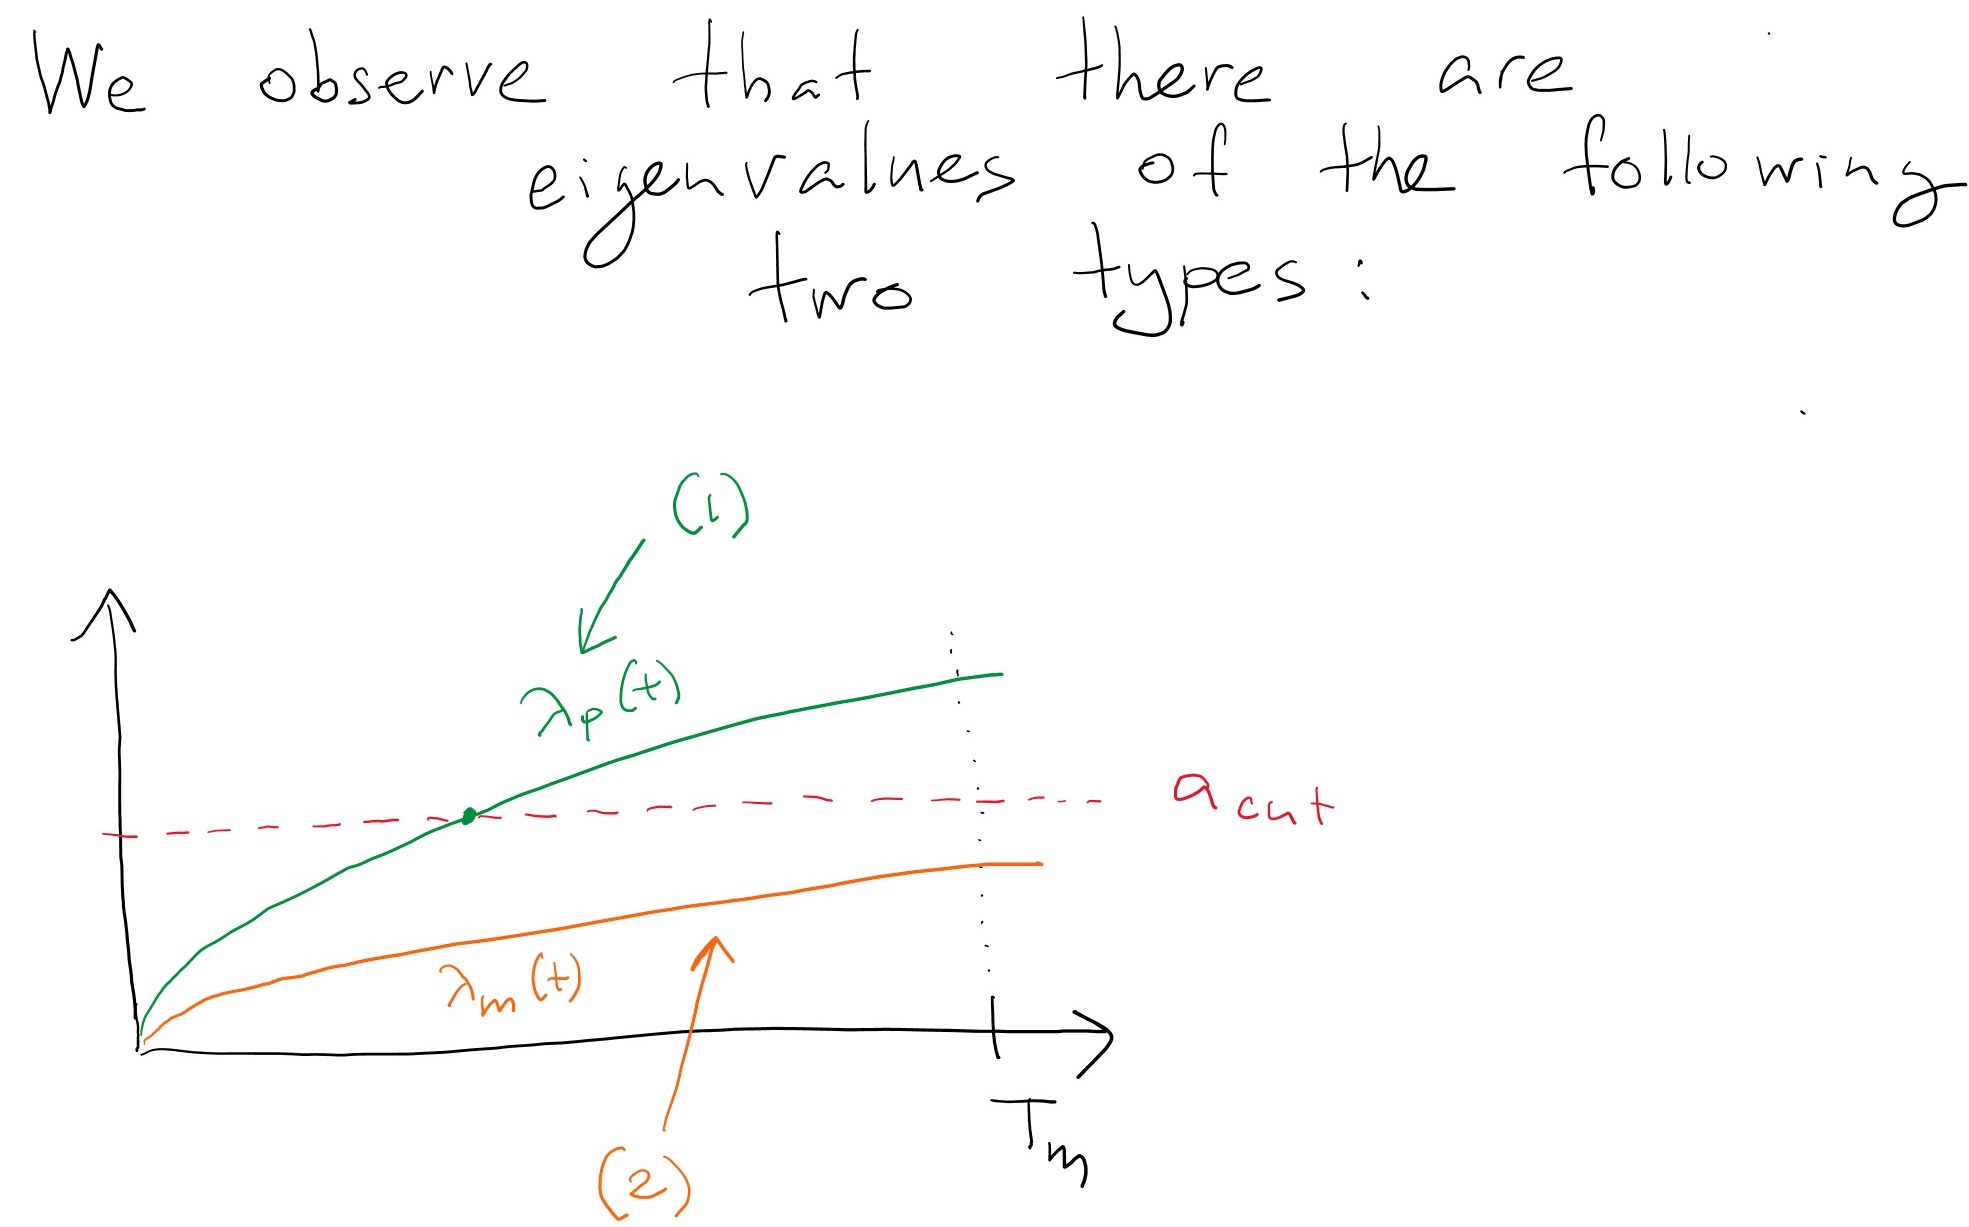 We observe that there are
eigenvalues of the following
two types:
(1)
λ_p(t)
a_cut
λ_m(t)
T_m
(2)